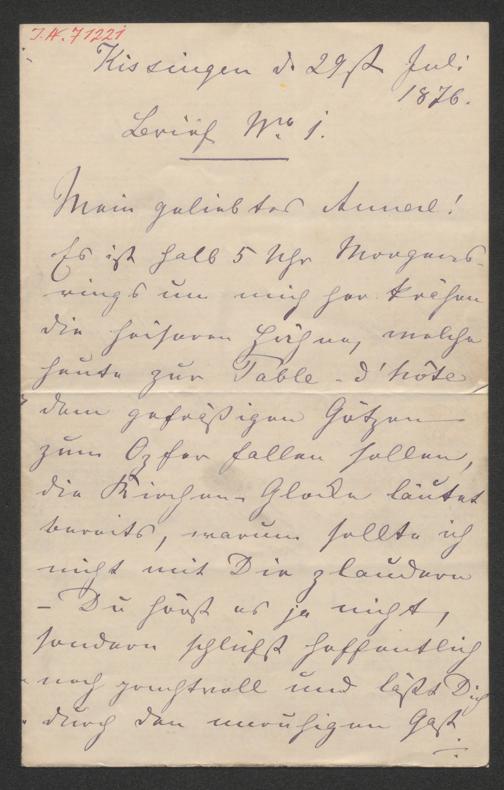 I.N. 71221
Kissingen d. 29st Juli
1876.
Brief No 1.
Mein geliebtes Annerl!
Es ist halb 5 Uhr Morgens
rings um mich her krähen
die heiseren Hähne, welche
heute zur Table-d'hôte
dem gefräßigen Götzen
zum Opfer fallen sollen,
die Kirchen-Glocke läutet
bereits, warum sollte ich
nicht mit Dir plaudern
- Du hörst es ja nicht,
sondern schläfst hoffentlich
noch prachtvoll und läßt Dich
durch den unruhigen Gast